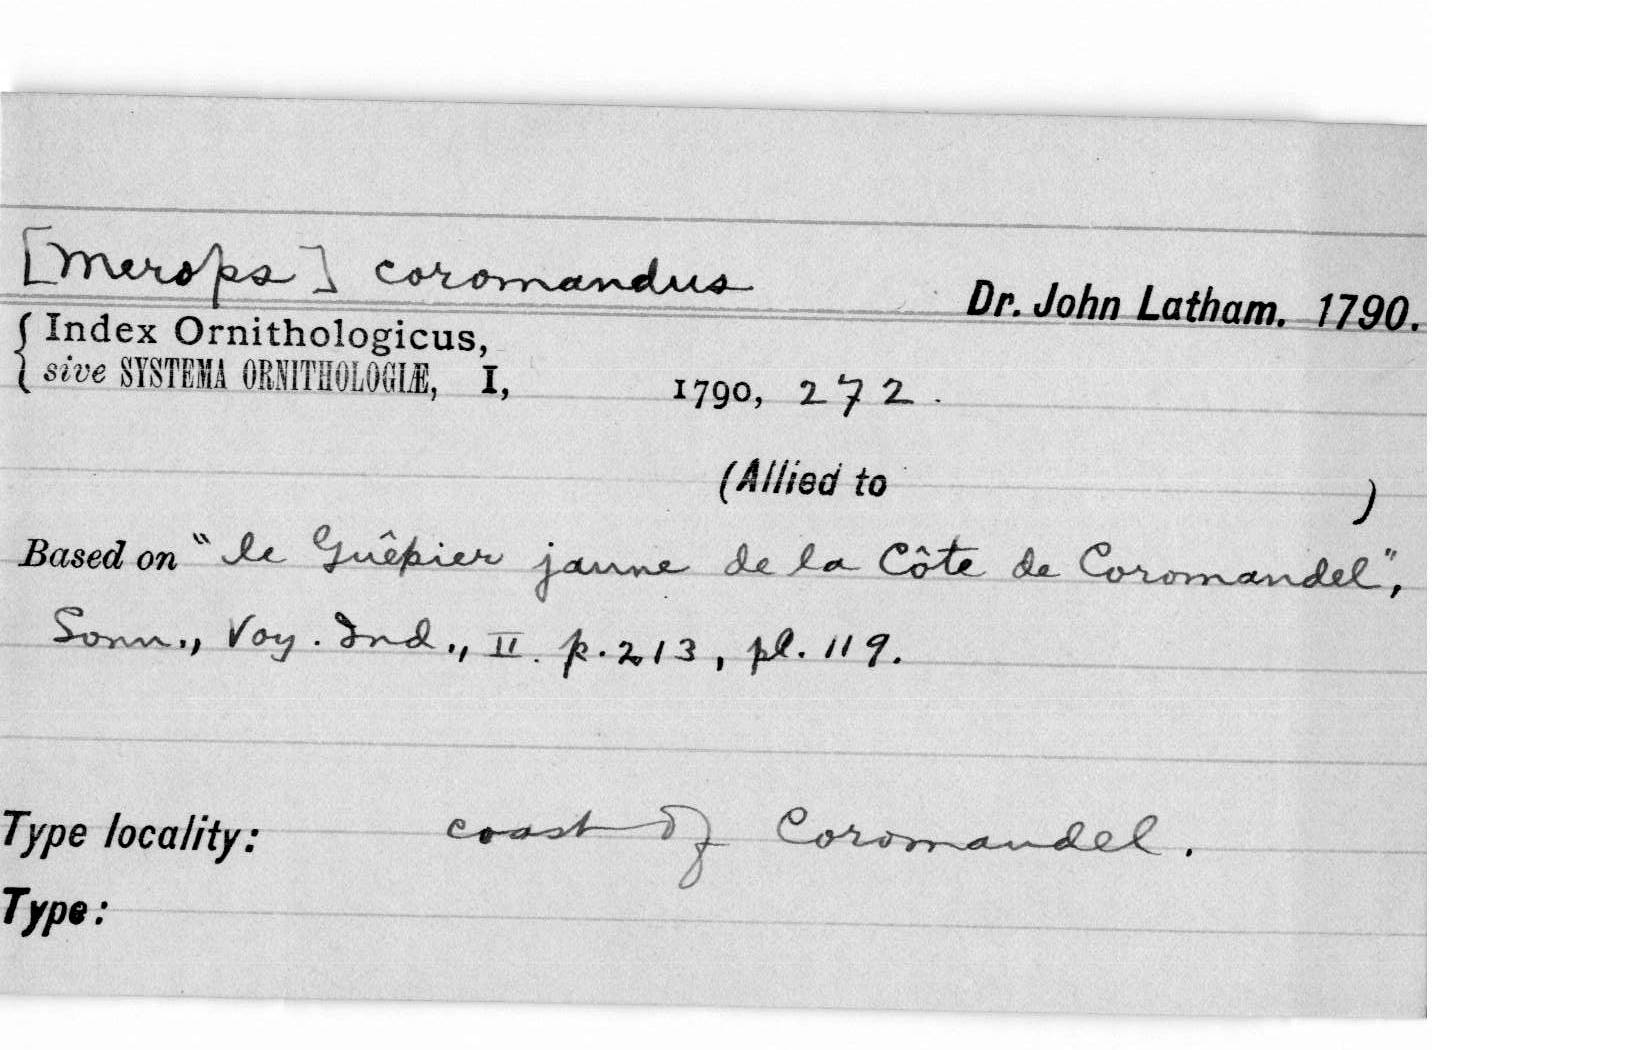 [Merops] coromandus
Dr. John Latham. 1790.
Index Ornithologicus,
sive SYSTEMA ORNITHOLOGIÆ, I, 1790, 272.
(Allied to )
Based on "le Guêpier jaune de la Côte de Coromandel",
Sonn., Voy. Ind., II. p. 213, pl. 119.
Type locality: coast of Coromandel.
Type: